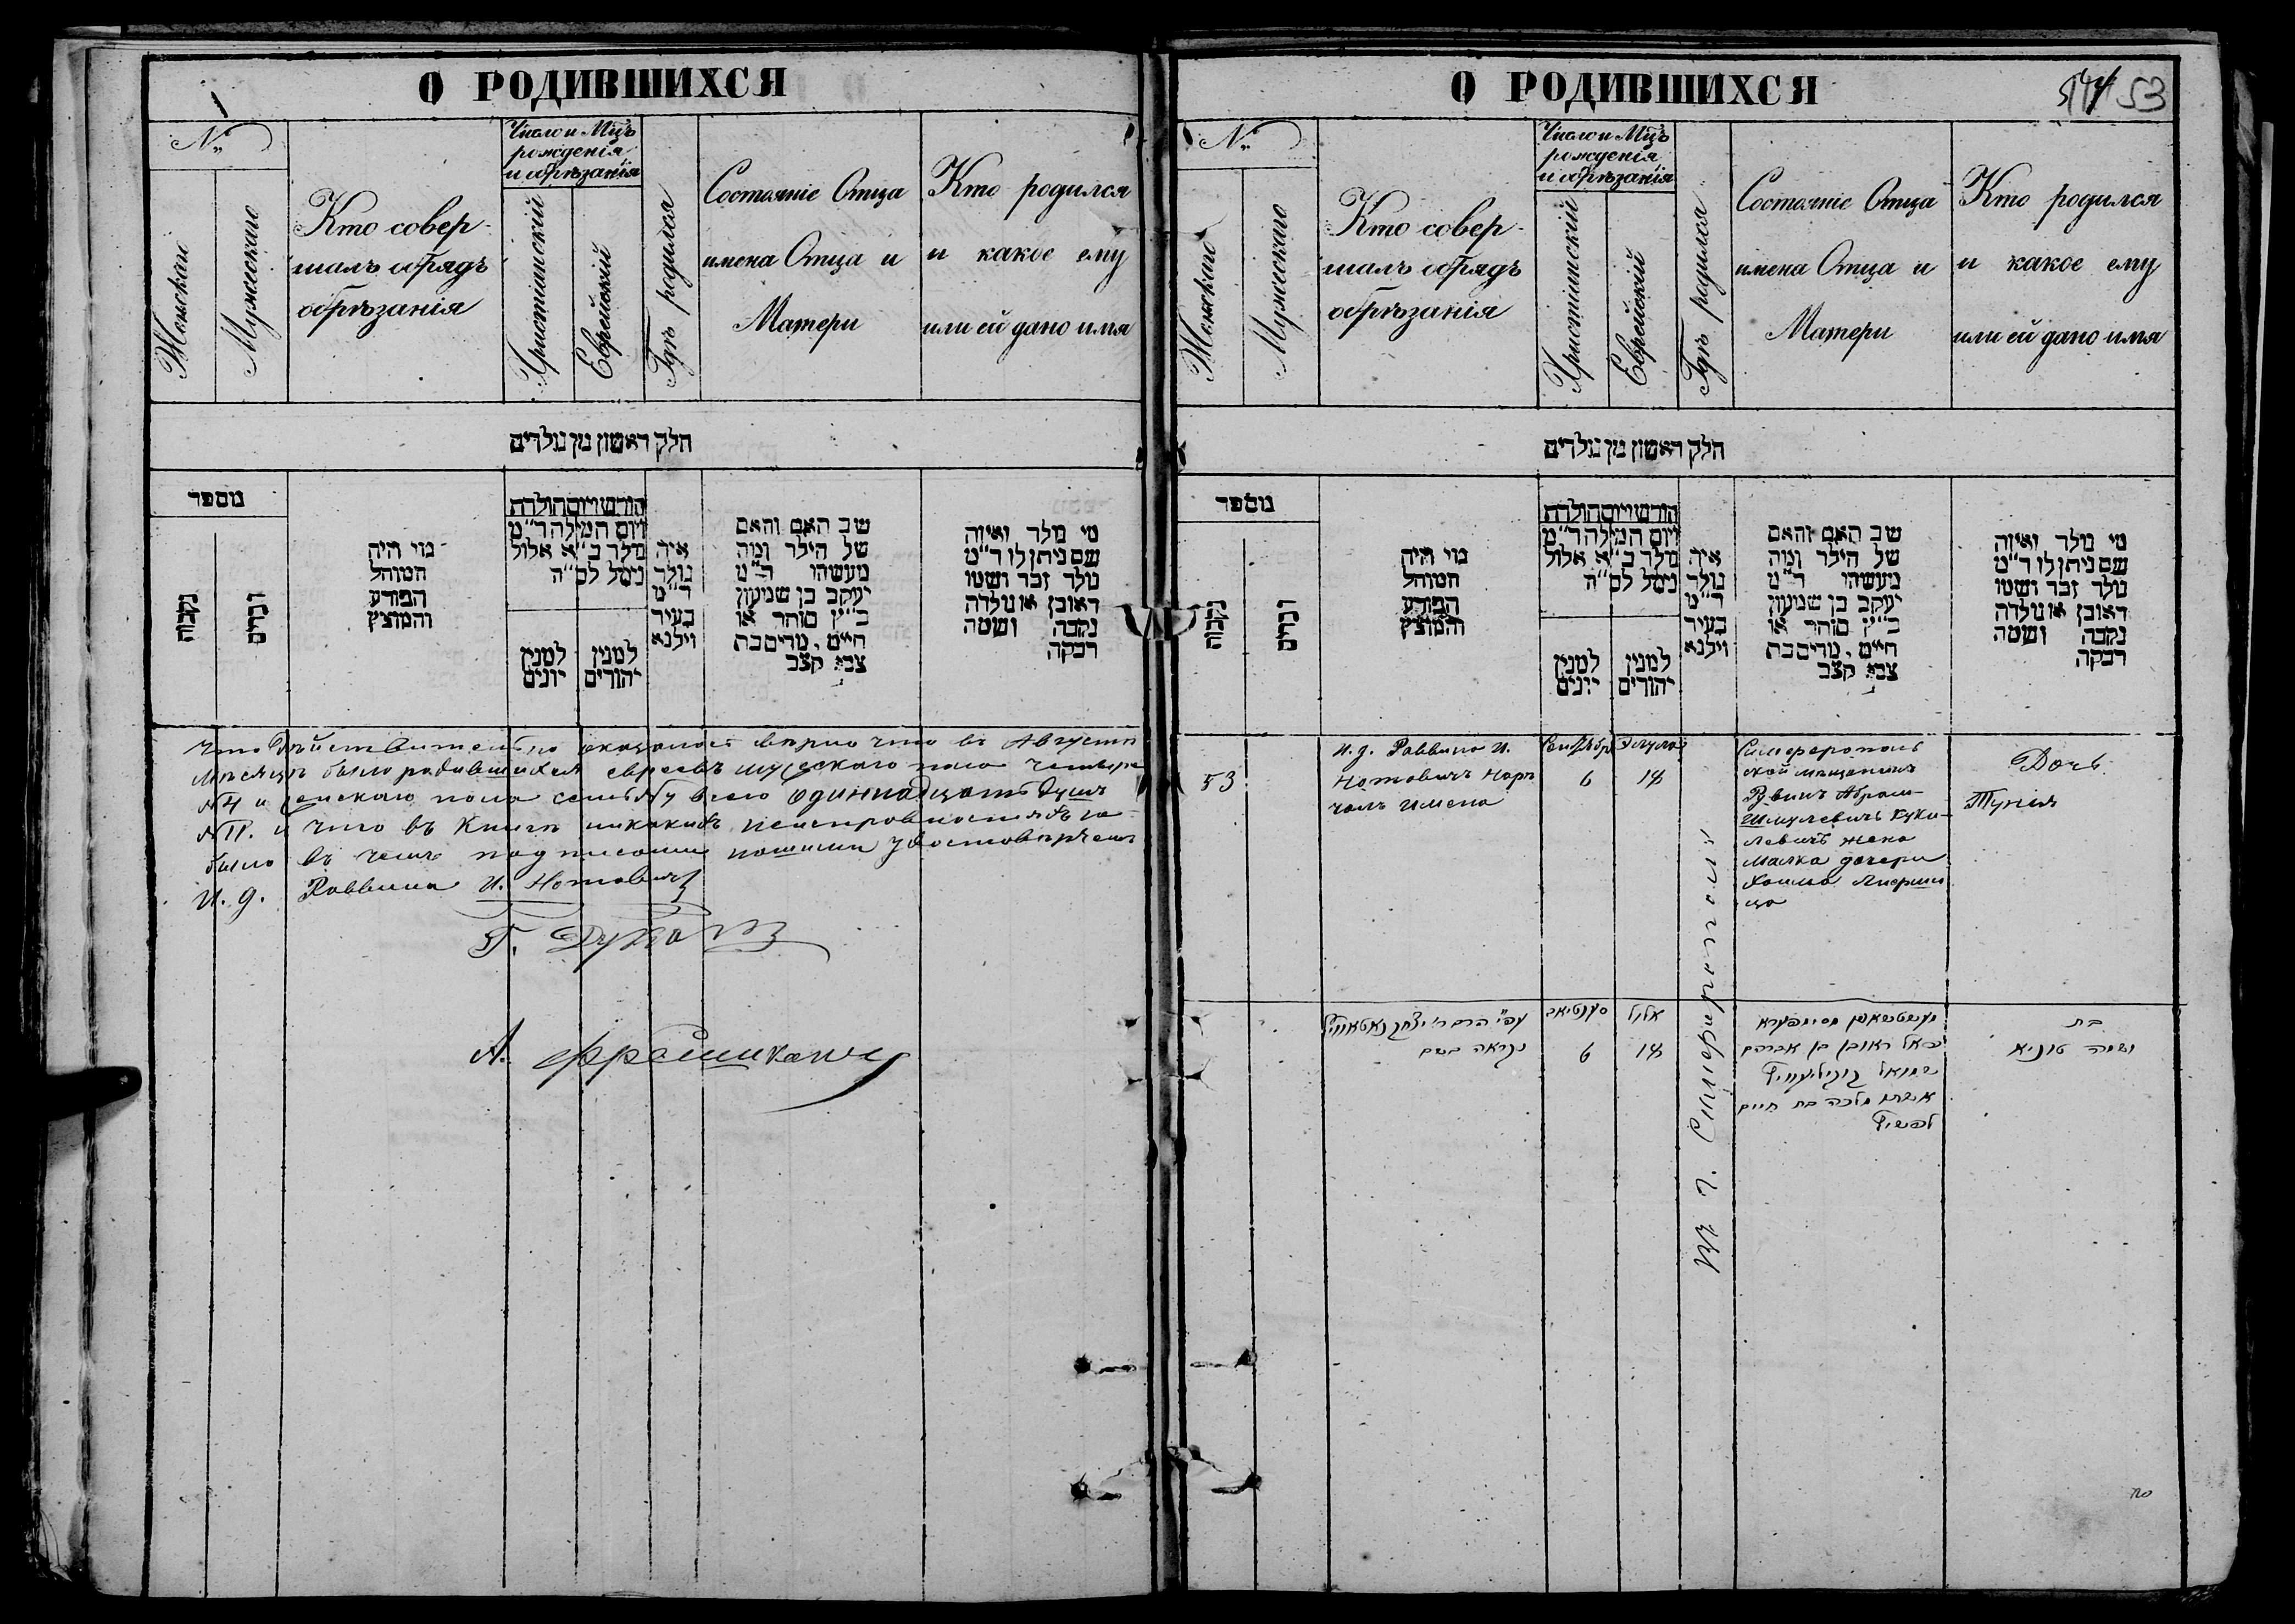 О РОДИВШИХСЯ
№
Женскаго
Мужескаго
Кто совер-
шалъ обрядъ
обрѣзанія
Число и Мцъ
рожденія
и обрѣзанія
Христіанскій
Еврейскій
Гдѣ родился
Состояніе Отца
имена Отца и
Матери
Кто родился
и какое ему
или ей дано имя
חלק ראשון מן נולדים
מספר
נקבות
זכרים
מי היה
המוהל
הפורע
והמוצץ
חודש ויום הולדת
ויום המילה ד"מ
נולד כ"א אלול
נימל לס"ה
למנין
יונים
למנין
יהודים
איה
נולד
ד"מ
בעיר
וילנא
שב האב והאם
של הילד ומה
מעשהו ד"מ
יעקב בן שמעון
כ"ץ סוחר או
חייט, מרים בת
צבי קצב
מי נולד ואיזה
שם ניתן לו ד"מ
נולד זכר ושמו
ראובן או נולדה
נקבה ושמה
רבקה
что дѣйствительно оказалось вѣрно что въ Августѣ
мѣсяцѣ было родившихся евреевъ мужескаго пола четыре
№4 и женскаго пола семь №7 всего одиннадцать душъ
№11. и что въ книгѣ никакихъ неисправностей не
было въ чемъ подписами нашими удостовѣряемъ
И. д. Раввина И. Нотовичъ
А.
О РОДИВШИХСЯ
53
№
Женскаго
Мужескаго
Кто совер-
шалъ обрядъ
обрѣзанія
Число и Мцъ
рожденія
и обрѣзанія
Христіанскій
Еврейскій
Гдѣ родился
Состояніе Отца
имена Отца и
Матери
Кто родился
и какое ему
или ей дано имя
חלק ראשון מן נולדים
מספר
נקבות
זכרים
מי היה
המוהל
הפורע
והמוצץ
חודש ויום הולדת
ויום המילה ד"מ
נולד כ"א אלול
נימל לס"ה
למנין
יונים
למנין
יהודים
איה
נולד
ד"מ
בעיר
וילנא
שב האב והאם
של הילד ומה
מעשהו ד"מ
יעקב בן שמעון
כ"ץ סוחר או
חייט, מרים בת
צבי קצב
מי נולד ואיזה
שם ניתן לו ד"מ
נולד זכר ושמו
ראובן או נולדה
נקבה ושמה
רבקה
53
И. д. Раввина И.
Нотовичъ наре
чалъ имена
Сентябр
6
Элула
18
г. Симферополь
Симферополь
ской мѣщанинъ
Рувинъ Абрам-
Шмулевичъ
жена
Малка дочери
Хаима
Дочь
Туния
נקראה בשם
6
אלול
18
ראובן בן אברהם
שמואל
אשתו מלכה בת חיים
בת
ושמה טוניא